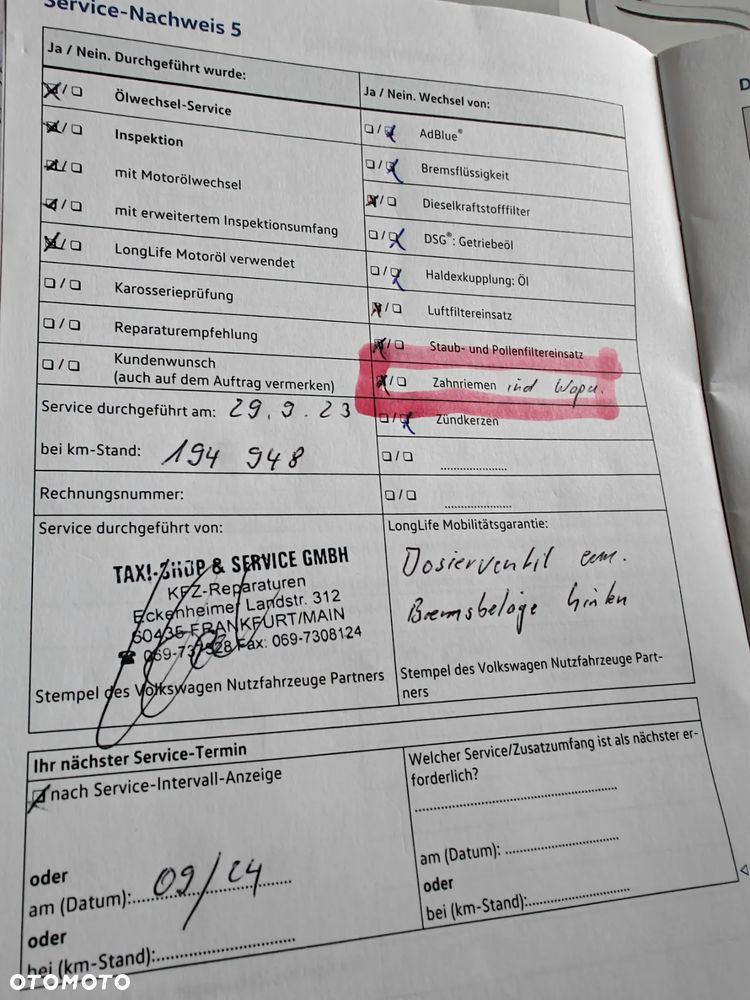 Service-Nachweis 5
Ja / Nein. Durchgeführt wurde:
Ölwechsel-Service
Inspektion
mit Motorölwechsel
mit erweitertem Inspektionsumfang
LongLife Motoröl verwendet
Karosserieprüfung
Reparaturempfehlung
Kundenwunsch
(auch auf dem Auftrag vermerken)
Service durchgeführt am: 29.9.23
bei km-Stand: 194 948
Rechnungsnummer:
Ja / Nein. Wechsel von:
AdBlue®
Bremsflüssigkeit
Dieselkraftstofffilter
DSG®: Getriebeöl
Haldexkupplung: Öl
Luftfiltereinsatz
Staub- und Pollenfiltereinsatz
Zahnriemen und Wapu.
Zündkerzen
Service durchgeführt von:
TAXI-SHOP & SERVICE GMBH
KFZ-Reparaturen
Eckenheimer Landstr. 312
60435 FRANKFURT/MAIN
Fax: 069-7308124
Stempel des Volkswagen Nutzfahrzeuge Partners
LongLife Mobilitätsgarantie:
Dosierventil ern.
Bremsbeläge hinten
Stempel des Volkswagen Nutzfahrzeuge Part-
ners
Ihr nächster Service-Termin
nach Service-Intervall-Anzeige
oder
am (Datum): 09/24
oder
bei (km-Stand):
Welcher Service/Zusatzumfang ist als nächster er-
forderlich?
am (Datum):
oder
bei (km-Stand):
D
OTOMOTO